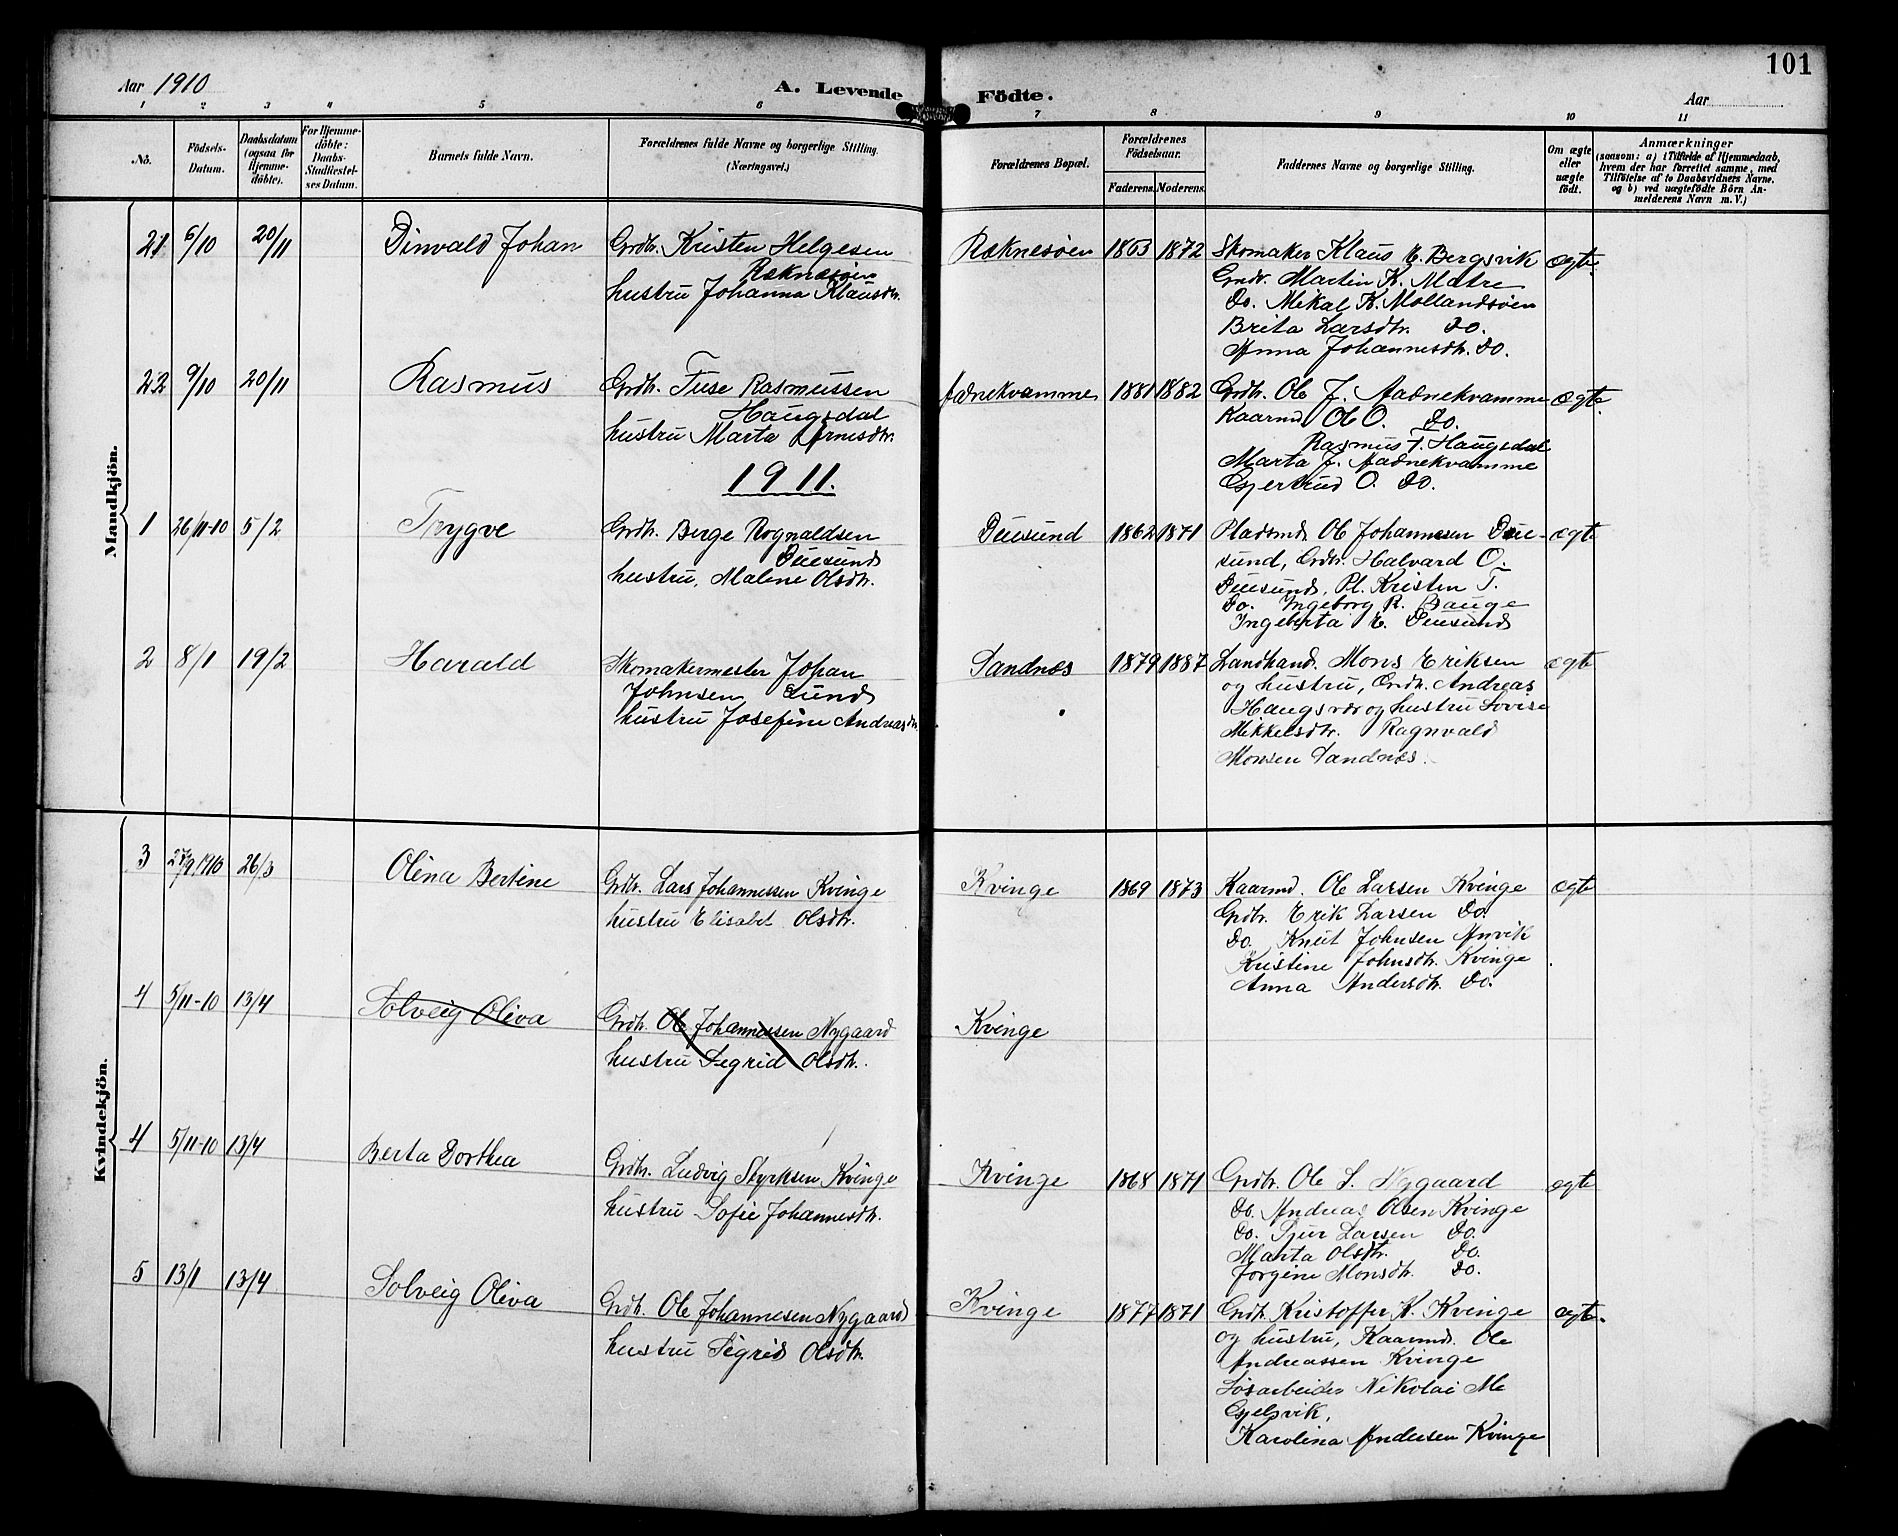 101
Aar 1910
A. Levende Födte.
Aar
1 2 3 4 5 6 7 8 9 10 11
No.
Födsels-
Datum.
Daabsdatum
(ogsaa for
Hjemme-
döbte).
For Hjemme-
döbte:
Daabs-
Stadfæstel-
ses Datum.
Barnets fulde Navn.
Forældrenes fulde Navne og borgerlige Stilling.
(Næringsvei.)
Forældrenes Bopæl.
Forældrenes
Födselsaar.
Faderens. Moderens.
Faddernes Navne og borgerlige Stilling.
Om ægte
eller
uægte
födt.
Anmærkninger
(saasom: a) i Tilfælde af Hjemmedaab,
hvem der har forrettet samme, med
Tilföielse af to Daabsvidners Navne,
og b) ved uægtefödte Börn An-
melderens Navn m. V.)
Mandkjön.
21 6/10 20/11 Dinvald Johan
Grdbr. Kristen Helgesen
Reknesøen
hustru Johanna Klausdtr.
Reknesøen 1863 1872
Skomaker Klaus E. Bergsvik
Grdbr. Martin K. Matre
Do. Mikal K. Mollandsøen
Brita Larsdtr. Do.
Anna Johannesdtr. Do.
ægte
22 9/10 20/11 Rasmus
Grdbr. Tuse Rasmussen
Haugsdal
hustru Marta Arnesdtr.
Aadnekvamme 1881 1882
Grdbr. Ole J. Aadnekvamme
Kaarmd Ole O. Do.
Rasmus T. Haugsdal
Marta J. Aadnekvamme
Gjertrud O. Do.
ægte
1911.
1 26/11-10 5/2 Trygve
Grdbr. Berge Rognaldsen
Duesund
hustru, Malene Olsdtr.
Duesund 1862 1871
Pladsmd Ole Johannesen Due-
sund, Grdbr. Halvard O.
Duesund, Pl. Kristen T.
Do. Ingeborg R. Bauge
Ingeberta E. Duesund
ægte
2 8/1 19/2 Harald
Skomakermester Johan
Johnsen Lund
hustru Josefine Andreasdtr.
Sandnes 1879 1887
Landhand. Mons Eriksen
og hustru, Grdbr. Andreas
Haugsvær og hustru Lovise
Mikkelsdtr. Ragnvald
Monsen Sandnes.
ægte
Kvindekjön.
3 27/9 1910 26/3 Olena Bertine
Grdbr. Lars Johannessen Kvinge
hustru Elisabet Olsdtr.
Kvinge 1869 1873
Kaarmd. Ole Larsen Kvinge
Grdbr. Erik Larsen Do.
Do. Knut Johnsen Anvik
Kristine Johnsdtr. Kvinge
Anna Andersdtr. Do.
ægte
4 5/11-10 13/4 Solveig Oliva
Grdbr. Ole Johannessen Nygaard
hustru Sigrid Olsdtr.
Kvinge
4 5/11-10 13/4 Berta Dorthea
Grdbr. Ludvig Styrksen Kvinge
hustru Sofie Johannesdtr.
Kvinge 1868 1871
Grdbr. Ole L. Nygaard
Do. Andreas Olsen Kvinge
Do. Sjur Larsen Do.
Marta Olsdtr. Do.
Jorgine Monsdtr. Do.
ægte
5 13/1 13/4 Solveig Oliva
Grdbr. Ole Johannesen Nygaard
hustru Sigrid Olsdtr.
Kvinge 1877 1871
Grdbr. Kristoffer K. Kvinge
og hustru, Kaarmd. Ole
Andreassen Kvinge
Løsarbeider Nikolai M
Gjelsvik,
Karolina Andersen Kvinge
ægte.